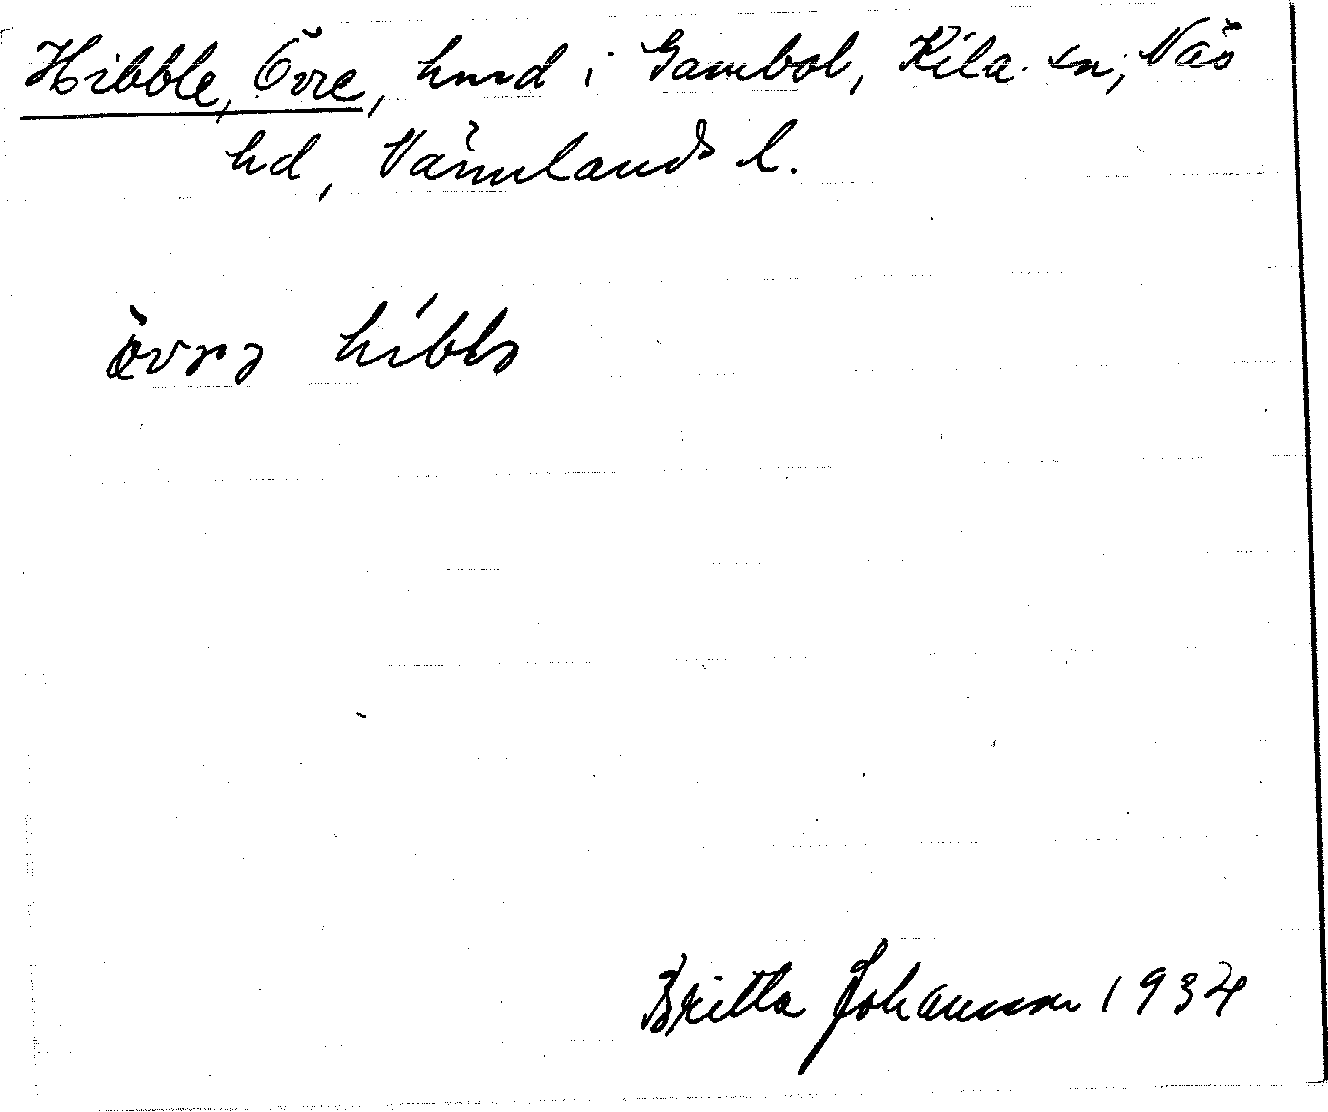 Hibble, Övre, hmd i Gambol, Kila sn, Näs
hd, Värmlands l.
övrə hibbl
Britta Johansson 1934